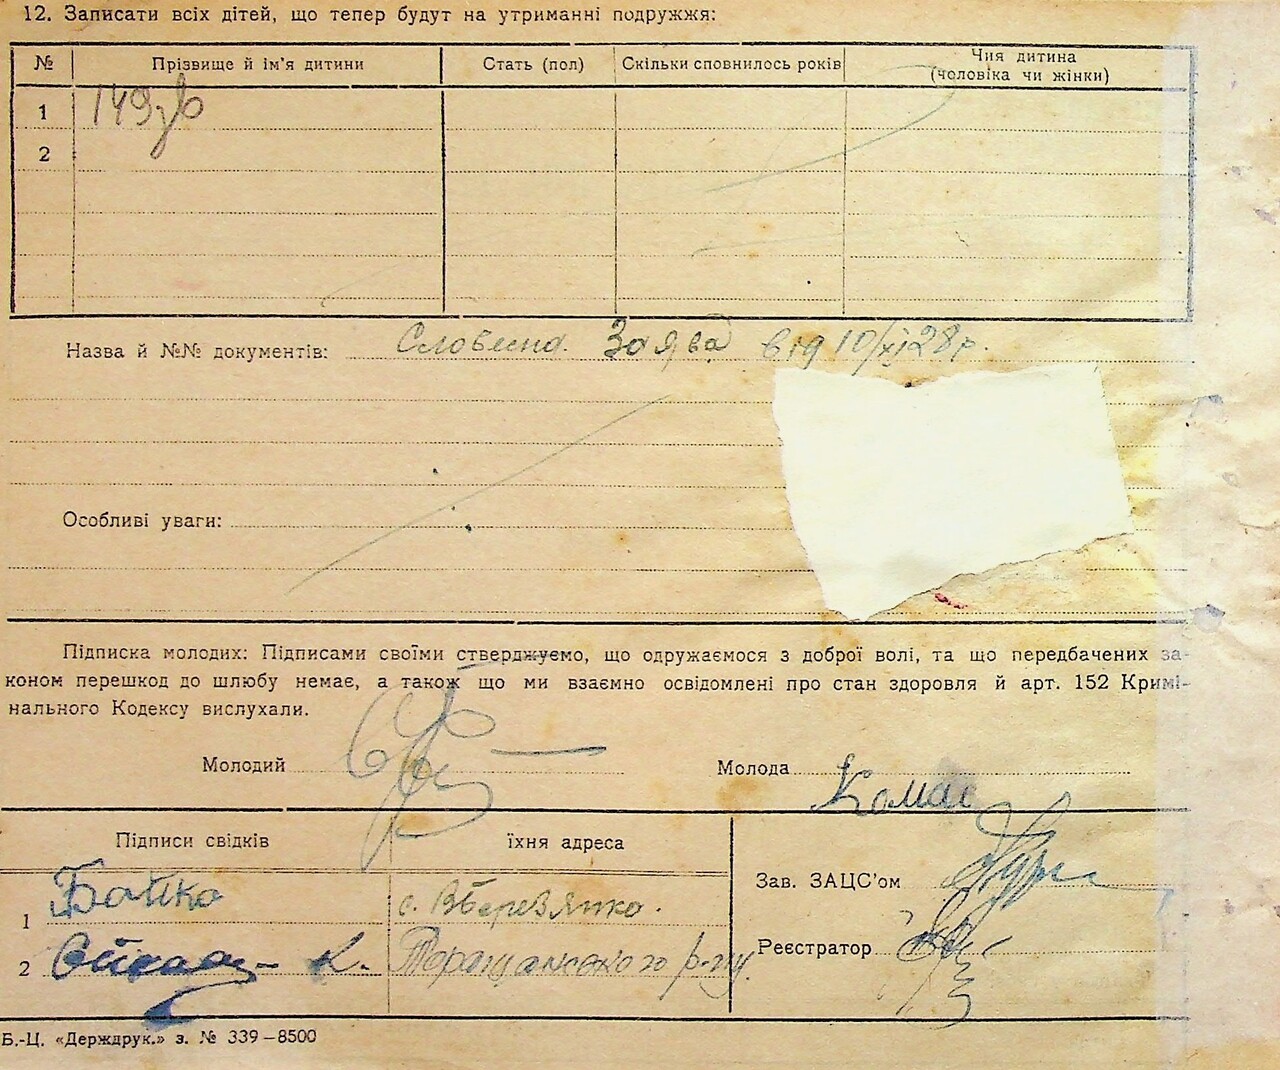 12. Записати всіх дітей, що тепер будут на утриманні подружжя:
№ Прізвище й ім'я дитини Стать (пол) Скільки сповнилось років Чия дитина (чоловіка чи жінки)
1
2
Назва й №№ документів: Словесна Заява від 10/XI 28 р.
Особливі уваги:
Підписка молодих: Підписами своїми стверджуємо, що одружаємося з доброї волі, та що передбачених за-
коном перешкод до шлюбу немає, а також що ми взаємно освідомлені про стан здоровля й арт. 152 Кримі-
нального Кодексу вислухали.
Молодий Молода
Підписи свідків їхня адреса
Зав. ЗАЦС'ом
1 Бойко с. В Березянка.
Реєстратор
2 К. Таращанського р-ну.
Б.-Ц. «Держдрук.» з. № 339—8500